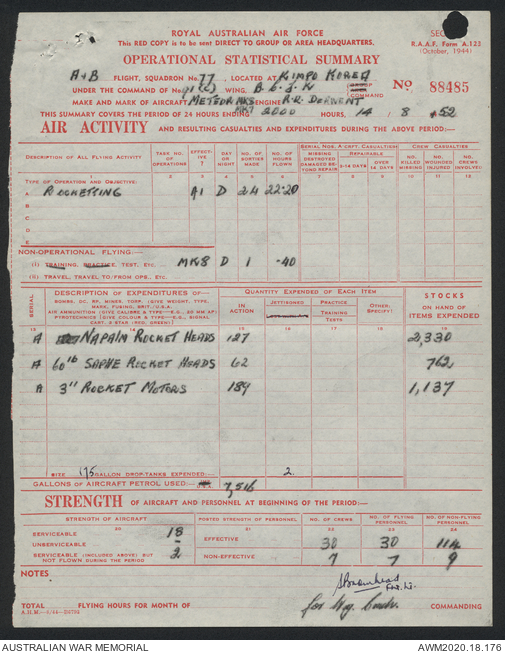 ROYAL AUSTRALIAN AIR FORCE
This RED COPY is to be sent DIRECT TO GROUP OR AREA HEADQUARTERS.
R.A.A.F. Form A.123
(October, 1944)
OPERATIONAL STATISTICAL SUMMARY
A+B FLIGHT, SQUADRON No. 77, LOCATED AT KIMPO KOREA
UNDER THE COMMAND OF No. WING, COMMAND
No 88485
MAKE AND MARK OF AIRCRAFT METEOR MK8 ENGINE R.R. DERWENT
THIS SUMMARY COVERS THE PERIOD OF 24 HOURS ENDING 2000 HOURS, 14 / 8 /52
AIR ACTIVITY AND RESULTING CASUALTIES AND EXPENDITURES DURING THE ABOVE PERIOD:—
DESCRIPTION OF ALL FLYING ACTIVITY
TASK NO. OF OPERATIONS
EFFECTIVE ?
DAY OR NIGHT
NO. OF SORTIES MADE
NO. OF HOURS FLOWN
SERIAL NOS. A'CFT. CASUALTIES
CREW CASUALTIES
MISSING DESTROYED DAMAGED BEYOND REPAIR
REPAIRABLE
0-14 DAYS
OVER 14 DAYS
NO. KILLED MISSING
NO. WOUNDED INJURED
NO. CREWS INVOLVED
TYPE OF OPERATION AND OBJECTIVE:
2 3 4 5 6 7 8 9 10 11 12
A ROCKETING A1 D 24 22·20
B
C
D
E
NON-OPERATIONAL FLYING:—
(i) TRAINING, PRACTICE, TEST, ETC. MK8 D 1 ·40
(ii) TRAVEL, TRAVEL TO/FROM OPS., ETC.
SERIAL
DESCRIPTION OF EXPENDITURES OF—
BOMBS, DC, RP, MINES, TORP. (GIVE WEIGHT, TYPE, MARK, FUSING, BRIT./U.S.A.
AIR AMMUNITION (GIVE CALIBRE & TYPE—E.G., 20 MM AP)
PYROTECHNICS (GIVE COLOUR & TYPE—E.G., SIGNAL CART. 2 STAR (RED, GREEN))
QUANTITY EXPENDED OF EACH ITEM
IN ACTION
JETTISONED
PRACTICE
TRAINING
TESTS
OTHER. SPECIFY:
STOCKS
ON HAND OF ITEMS EXPENDED
13 14 15 16 17 18 19
A NAPALM ROCKET HEADS 127 2,330
A 60 lb SAPHE ROCKET HEADS 62 762
A 3" ROCKET MOTORS 189 1,137
SIZE 175 GALLON DROP-TANKS EXPENDED:— 2
GALLONS OF AIRCRAFT PETROL USED:— 7,516
STRENGTH OF AIRCRAFT AND PERSONNEL AT BEGINNING OF THE PERIOD:—
STRENGTH OF AIRCRAFT
POSTED STRENGTH OF PERSONNEL
NO. OF CREWS
NO. OF FLYING PERSONNEL
NO. OF NON-FLYING PERSONNEL
20 21 22 23 24
SERVICEABLE 18
UNSERVICEABLE -
SERVICEABLE (INCLUDED ABOVE) BUT NOT FLOWN DURING THE PERIOD 2
EFFECTIVE 30 30 114
NON-EFFECTIVE 7 7 9
NOTES
Flt. Lt.
TOTAL FLYING HOURS FOR MONTH OF
for Wg. Cmdr. COMMANDING
AUSTRALIAN WAR MEMORIAL
AWM2020.18.176